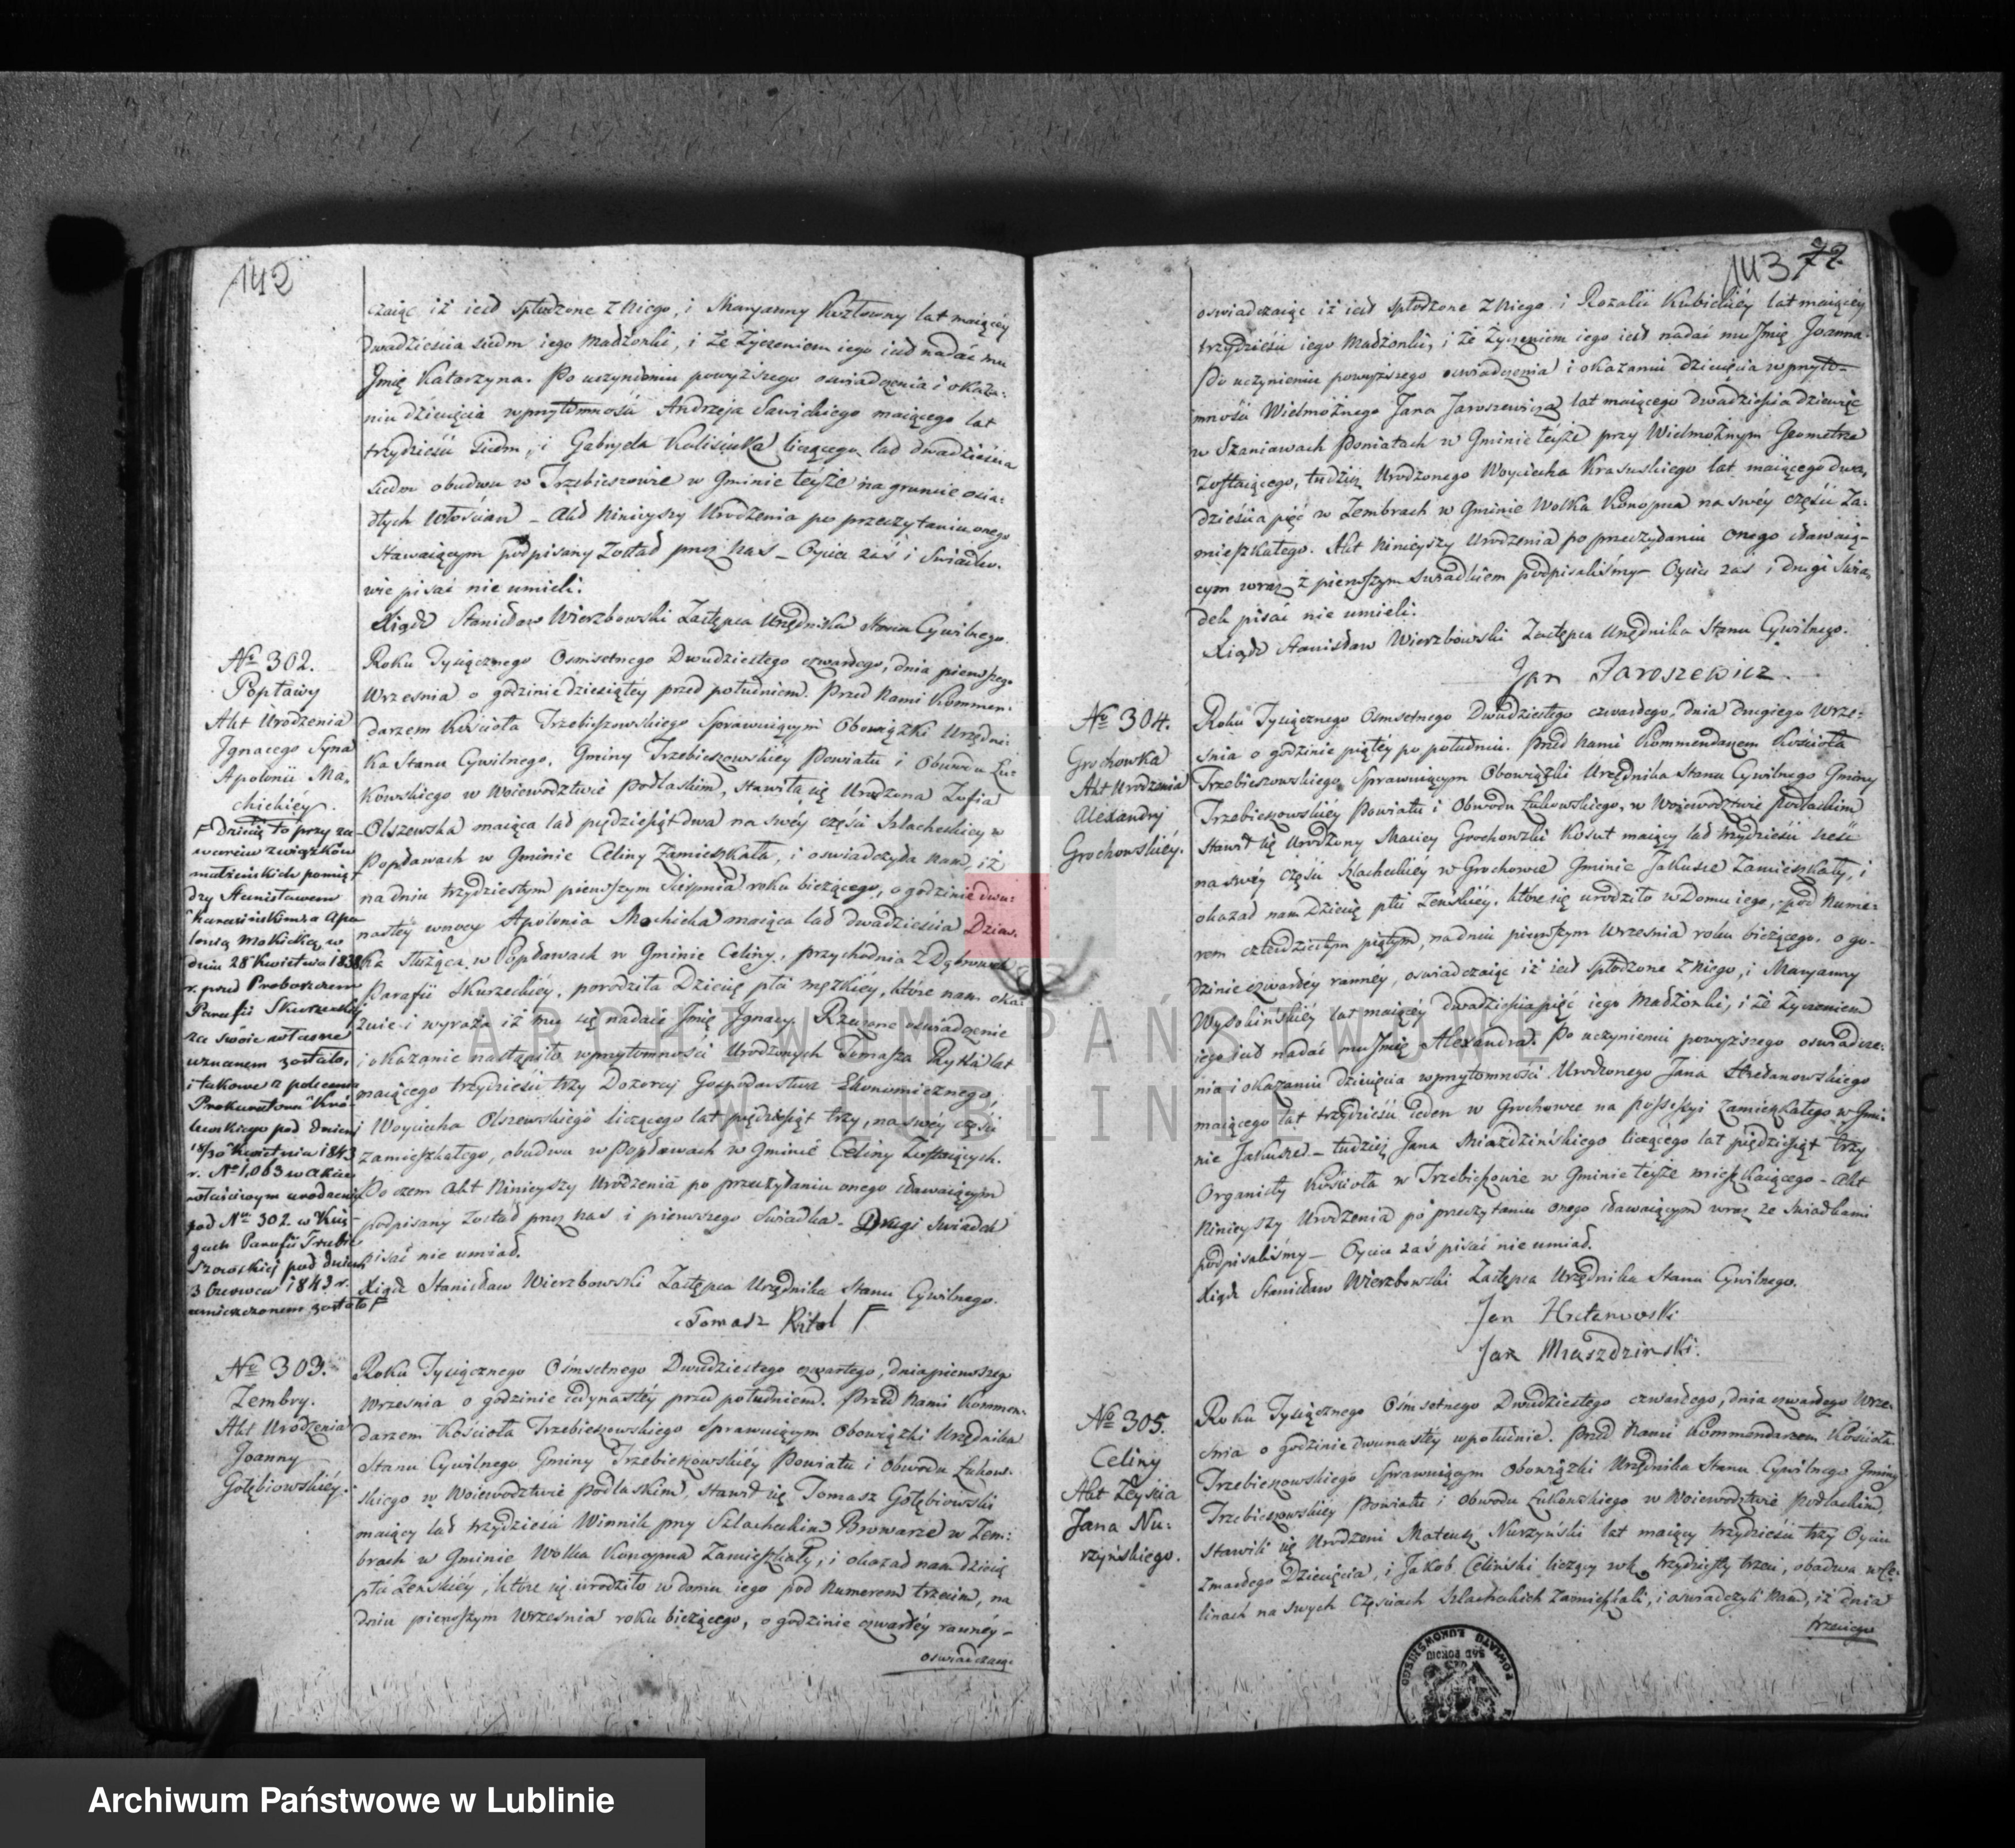 142
czaiąc iż iest spłodzone z Niego, i Maryanny Kozłowny lat maiącéy
dwadzieścia siedm iego Małżonki, i że życzeniem iego iest nadać mu
Imię Katarzyna. Po uczynieniu powyższego oświadczenia i okaza-
niu dziecięcia w przytomności Andrzeja Sawickiego maiącego lat
trzydzieści siedm, i Gabryela liczącego lat dwadzieścia
siedm obudwu w Trzebieszowie w Gminie téyże na gruncie osia-
dłych Włościan – Akt Ninieyszy Urodzenia po przeczytaniu onego
Stawaiącym podpisany został przez Nas – Oyciec zaś i Świadko-
wie pisać nie umieli.
Xiądz Stanisław Wierzbowski Zastępca Urzędnika Stanu Cywilnego.
No 302.
Popławy
Akt Urodzenia
Ignacego Syna
Apolonii Ma-
chickiéy.
Roku Tysiącznego Osmsetnego Dwudziestego czwartego, dnia pierwszego
Września o godzinie dziesiątéy przed południem. Przed Nami Kommen-
darzem Kościoła Trzebieszowskiego Sprawuiącym Obowiązki Urzędni-
ka Stanu Cywilnego, Gminy Trzebieszowskiéy Powiatu i Obwodu Łu-
kowskiego w Woiewództwie Podlaskim, Stawiła się Urodzona Zofia
Olszewska maiąca lat pięćdziesiąt dwa na swéy części Szlacheckiey w
Popławach w Gminie Celiny Zamieszkała, i oświadczyła Nam iż
na dniu trzydziestym pierwszym Sierpnia roku bieżącego, o godzinie dwu-
nastéy w nocy Apolonia Machicka maiąca lat dwadzieścia Dziew-
ka Służąca w Popławach w Gminie Celiny, przychodnia z
Parafii Skurzeckiéy, porodziła Dziecię płci męzkiéy, które nam oka-
zuie i wyraża iż mu się nadaie Imię Ignacy. Rzeczone oświadczenie
i okazanie nastąpiło w przytomności Urodzonych Tomasza Rytka lat
maiącego trzydzieści trzy Dozorcy Gospodarstwa Ekonomicznego,
i Woyciecha Olszewskiego liczącego lat pięćdziesiąt trzy, na swéy części
zamieszkałego, obudwu w Popławach w Gminie Celiny Zostaiących.
Po czem Akt Ninieyszy Urodzenia po przeczytaniu onego stawaiącym
podpisany został przez Nas i pierwszego Świadka – Drugi Świadek
pisać nie umiał.
Xiądz Stanisław Wierzbowski Zastępca Urzędnika Stanu Cywilnego.
Tomasz Ritel F
F Dziecię to przy za
warciu związków
małżeńskich pomię
dzy Stanisławem
a Apo
lonią Makicką w
dniu 28 Kwietnia 1838
r. przed Proboszczem
Parafii Skurzeckiéy
za swoie własne
uznanem zostało,
i takowe z polecenia
Prokuratora Kró
lewskiego pod dniem
18/30 Kwietnia 1843
r. No 1,063 w akcie
właściwym urodzenia
pod Nr 302 w Księ-
gach Parafii Trzebie
szowskiéy pod dniem
3 Czerwca 1843 r.
umieszczonem zostało F
No 303.
Zembry.
Akt Urodzenia
Joanny
Gołębiowskiéy.
Roku Tysiącznego Osmsetnego Dwudziestego czwartego, dnia pierwszego
Września o godzinie iedynastéy przed południem. Przed Nami Kommen-
darzem Kościoła Trzebieszowskiego Sprawuiącym Obowiązki Urzędnika
Stanu Cywilnego Gminy Trzebieszowskiéy Powiatu i Obwodu Łukow-
skiego w Woiewództwie Podlaskim, Stawił się Tomasz Gołębiowski
maiący lat trzydzieści Winnik przy Szlacheckim Browarze w Zem-
brach w Gminie Wolka Konopna Zamieszkały, i okazał nam dziecię
płci Żeńskiéy, które się urodziło w domu iego pod Numerem trzecim, na
dniu pierwszym Września roku bieżącego, o godzinie czwartéy rannéy –
oświadczaiąc
143
72
oświadczaiąc iż iest spłodzone z Niego i Rozalii Kubickiéy lat maiącéy
trzydzieści iego Małżonki, i że życzeniem iego iest nadać mu Imię Joanna.
Po uczynieniu powyższego oświadczenia i okazaniu dziecięcia w przyto-
mności Wielmożnego Jana Jaroszewicza lat maiącego dwadzieścia dziewięć
w Szaniawach Poniatach w Gminie téyże przy Wielmożnym Geometrze
Zostaiącego, tudzież Urodzonego Woyciecha Krasuskiego lat maiącego dwa-
dzieścia pięć w Zembrach w Gminie Wolka Konopna na swéy części Za-
mieszkałego. Akt Ninieyszy Urodzenia po przeczytaniu onego stawaią-
cym wraz z pierwszym Świadkiem podpisaliśmy – Oyciec zaś i drugi Świa-
dek pisać nie umieli.
Xiądz Stanisław Wierzbowski Zastępca Urzędnika Stanu Cywilnego.
Jan Jaroszewicz.
No 304.
Grochowka
Akt Urodzenia
Alexandry
Grochowskiéy.
Roku Tysiącznego Osmsetnego Dwudziestego czwartego, dnia drugiego Wrze-
śnia o godzinie piątéy po południu. Przed Nami Kommendarzem Kościoła
Trzebieszowskiego, Sprawuiącym Obowiązki Urzędnika Stanu Cywilnego Gminy
Trzebieszowskiéy Powiatu i Obwodu Łukowskiego, w Woiewództwie Podlaskim
Stawił się Urodzony Maciey Grochowski Kosut maiący lat trzydzieści sześć
na swéy części Szlacheckiéy w Grochowce Gminie Jakusze Zamieszkały, i
okazał nam Dziecię płci Żeńskiéy, które się urodziło w Domu iego, pod Nume-
rem czterdziestym piątym, na dniu pierwszym Września roku bieżącego, o go-
dzinie czwartéy rannéy, oświadczaiąc iż iest spłodzone z Niego, i Maryanny
Wysokińskiéy lat maiącéy dwadzieścia pięć iego Małżonki, i że życzeniem
iego iest nadać mu Imię Alexandra. Po uczynieniu powyższego oświadcze-
nia i okazaniu dziecięcia w przytomności Urodzonego Jana
maiącego lat trzydzieści ieden w Grochowce na possessyi zamieszkałego w Gmi-
nie Jakusze – tudzież Jana Miaździńskiego liczącego lat pięćdziesiąt trzy
Organisty Kościoła w Trzebieszowie w Gminie téyże mieszkaiącego – Akt
Ninieyszy Urodzenia po przeczytaniu onego stawaiącym wraz ze Świadkami
podpisaliśmy – Oyciec zaś pisać nie umiał.
Xiądz Stanisław Wierzbowski Zastępca Urzędnika Stanu Cywilnego.
Jan
Jan Miaszdzinski.
No 305.
Celiny
Akt Zeyścia
Jana Nu-
rzyńskiego.
Roku Tysiącznego Ośmsetnego Dwudziestego czwartego, dnia czwartego Wrze-
śnia o godzinie dwunastéy w południe. Przed Nami Kommendarzem Kościoła
Trzebieszowskiego Sprawuiącym Obowiązki Urzędnika Stanu Cywilnego Gminy
Trzebieszowskiéy Powiatu i Obwodu Łukowskiego w Woiewództwie Podlaskim,
Stawili się Urodzeni Mateusz Nurzyński lat maiący trzydzieści trzy Oyciec
Zmarłego Dziecięcia, i Jakob Celiński liczący rok trzydziesty trzeci, obadwa w Ce-
linach na swych Częściach Szlacheckich Zamieszkali, i oświadczyli Nam, iż dnia
trzeciego
POWIATU ŁUKOWSKIEGO
SĄD POKOIU
ARCHIWUM PAŃSTWOWE
W LUBLINIE
Archiwum Państwowe w Lublinie